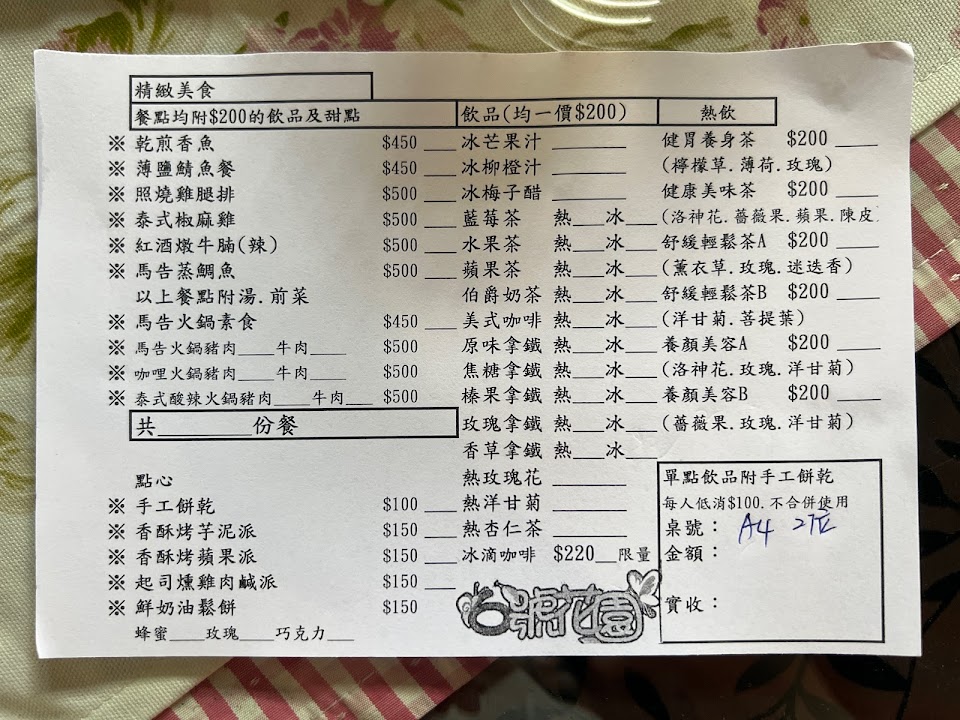 精緻美食
餐點均附$200的飲品及甜點
※ 乾煎香魚 $450 ___
※ 薄鹽鯖魚餐 $450 ___
※ 照燒雞腿排 $500 ___
※ 泰式椒麻雞 $500 ___
※ 紅酒燉牛腩(辣) $500 ___
※ 馬告蒸鯛魚 $500 ___
以上餐點附湯.前菜
※ 馬告火鍋素食 $450 ___
※ 馬告火鍋豬肉____牛肉____ $500
※ 咖哩火鍋豬肉____牛肉____ $500
※ 泰式酸辣火鍋豬肉____牛肉___ $500
共________份餐
點心
※ 手工餅乾 $100 ___
※ 香酥烤芋泥派 $150 ___
※ 香酥烤蘋果派 $150 ___
※ 起司燻雞肉鹹派 $150 ___
※ 鮮奶油鬆餅 $150
蜂蜜____玫瑰____巧克力___
飲品(均一價$200)
冰芒果汁 ________
冰柳橙汁 ________
冰梅子醋 ________
藍莓茶 熱___冰___
水果茶 熱___冰___
蘋果茶 熱___冰___
伯爵奶茶 熱___冰___
美式咖啡 熱___冰___
原味拿鐵 熱___冰___
焦糖拿鐵 熱___冰___
榛果拿鐵 熱___冰___
玫瑰拿鐵 熱___冰___
香草拿鐵 熱___冰___
熱玫瑰花 ________
熱洋甘菊 ________
熱杏仁茶 ________
冰滴咖啡 $220__限量
6號花園
熱飲
健胃養身茶 $200 ____
(檸檬草.薄荷.玫瑰)
健康美味茶 $200 ____
(洛神花.薔薇果.蘋果.陳皮
舒緩輕鬆茶A $200 ____
(薰衣草.玫瑰.迷迭香)
舒緩輕鬆茶B $200 ____
(洋甘菊.菩提葉)
養顏美容A $200 ____
(洛神花.玫瑰.洋甘菊)
養顏美容B $200 ____
(薔薇果.玫瑰.洋甘菊)
單點飲品附手工餅乾
每人低消$100.不合併使用
桌號： A4 2位
金額：
實收：